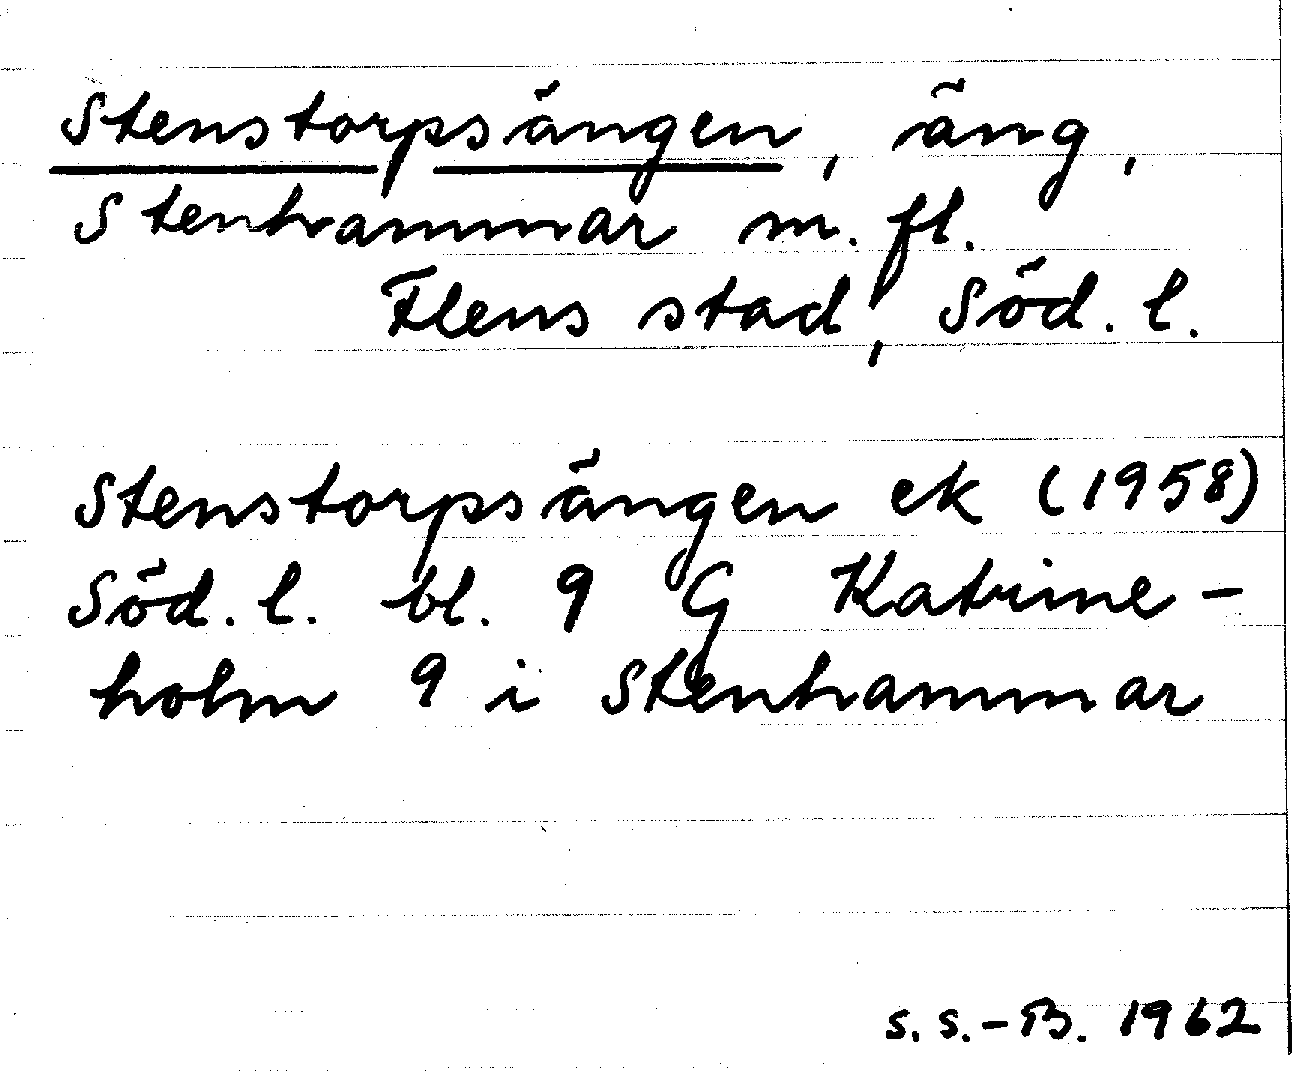 Stenstorpsängen, äng,
Stenhammar m. fl.
Flens stad, Söd. l.
Stenstorpsängen ek (1958)
Söd. l. bl. 9 G Katrine-
holm 9 i Stenhammar
S. S.-B. 1962